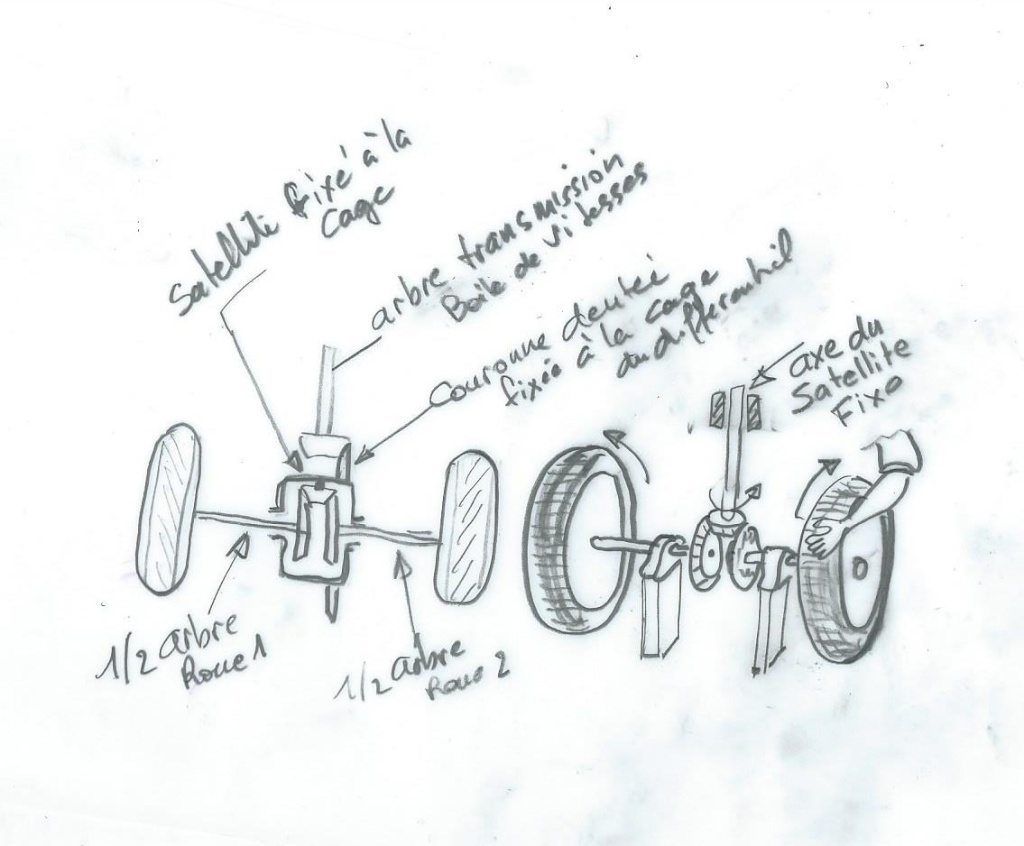 Satellite fixé à la
cage
arbre transmission
Boite de vitesses
couronne dentée
fixée à la cage
du differentiel
axe du
Satellite
Fixe
1/2 arbre
Roue 1
1/2 arbre
Roue 2